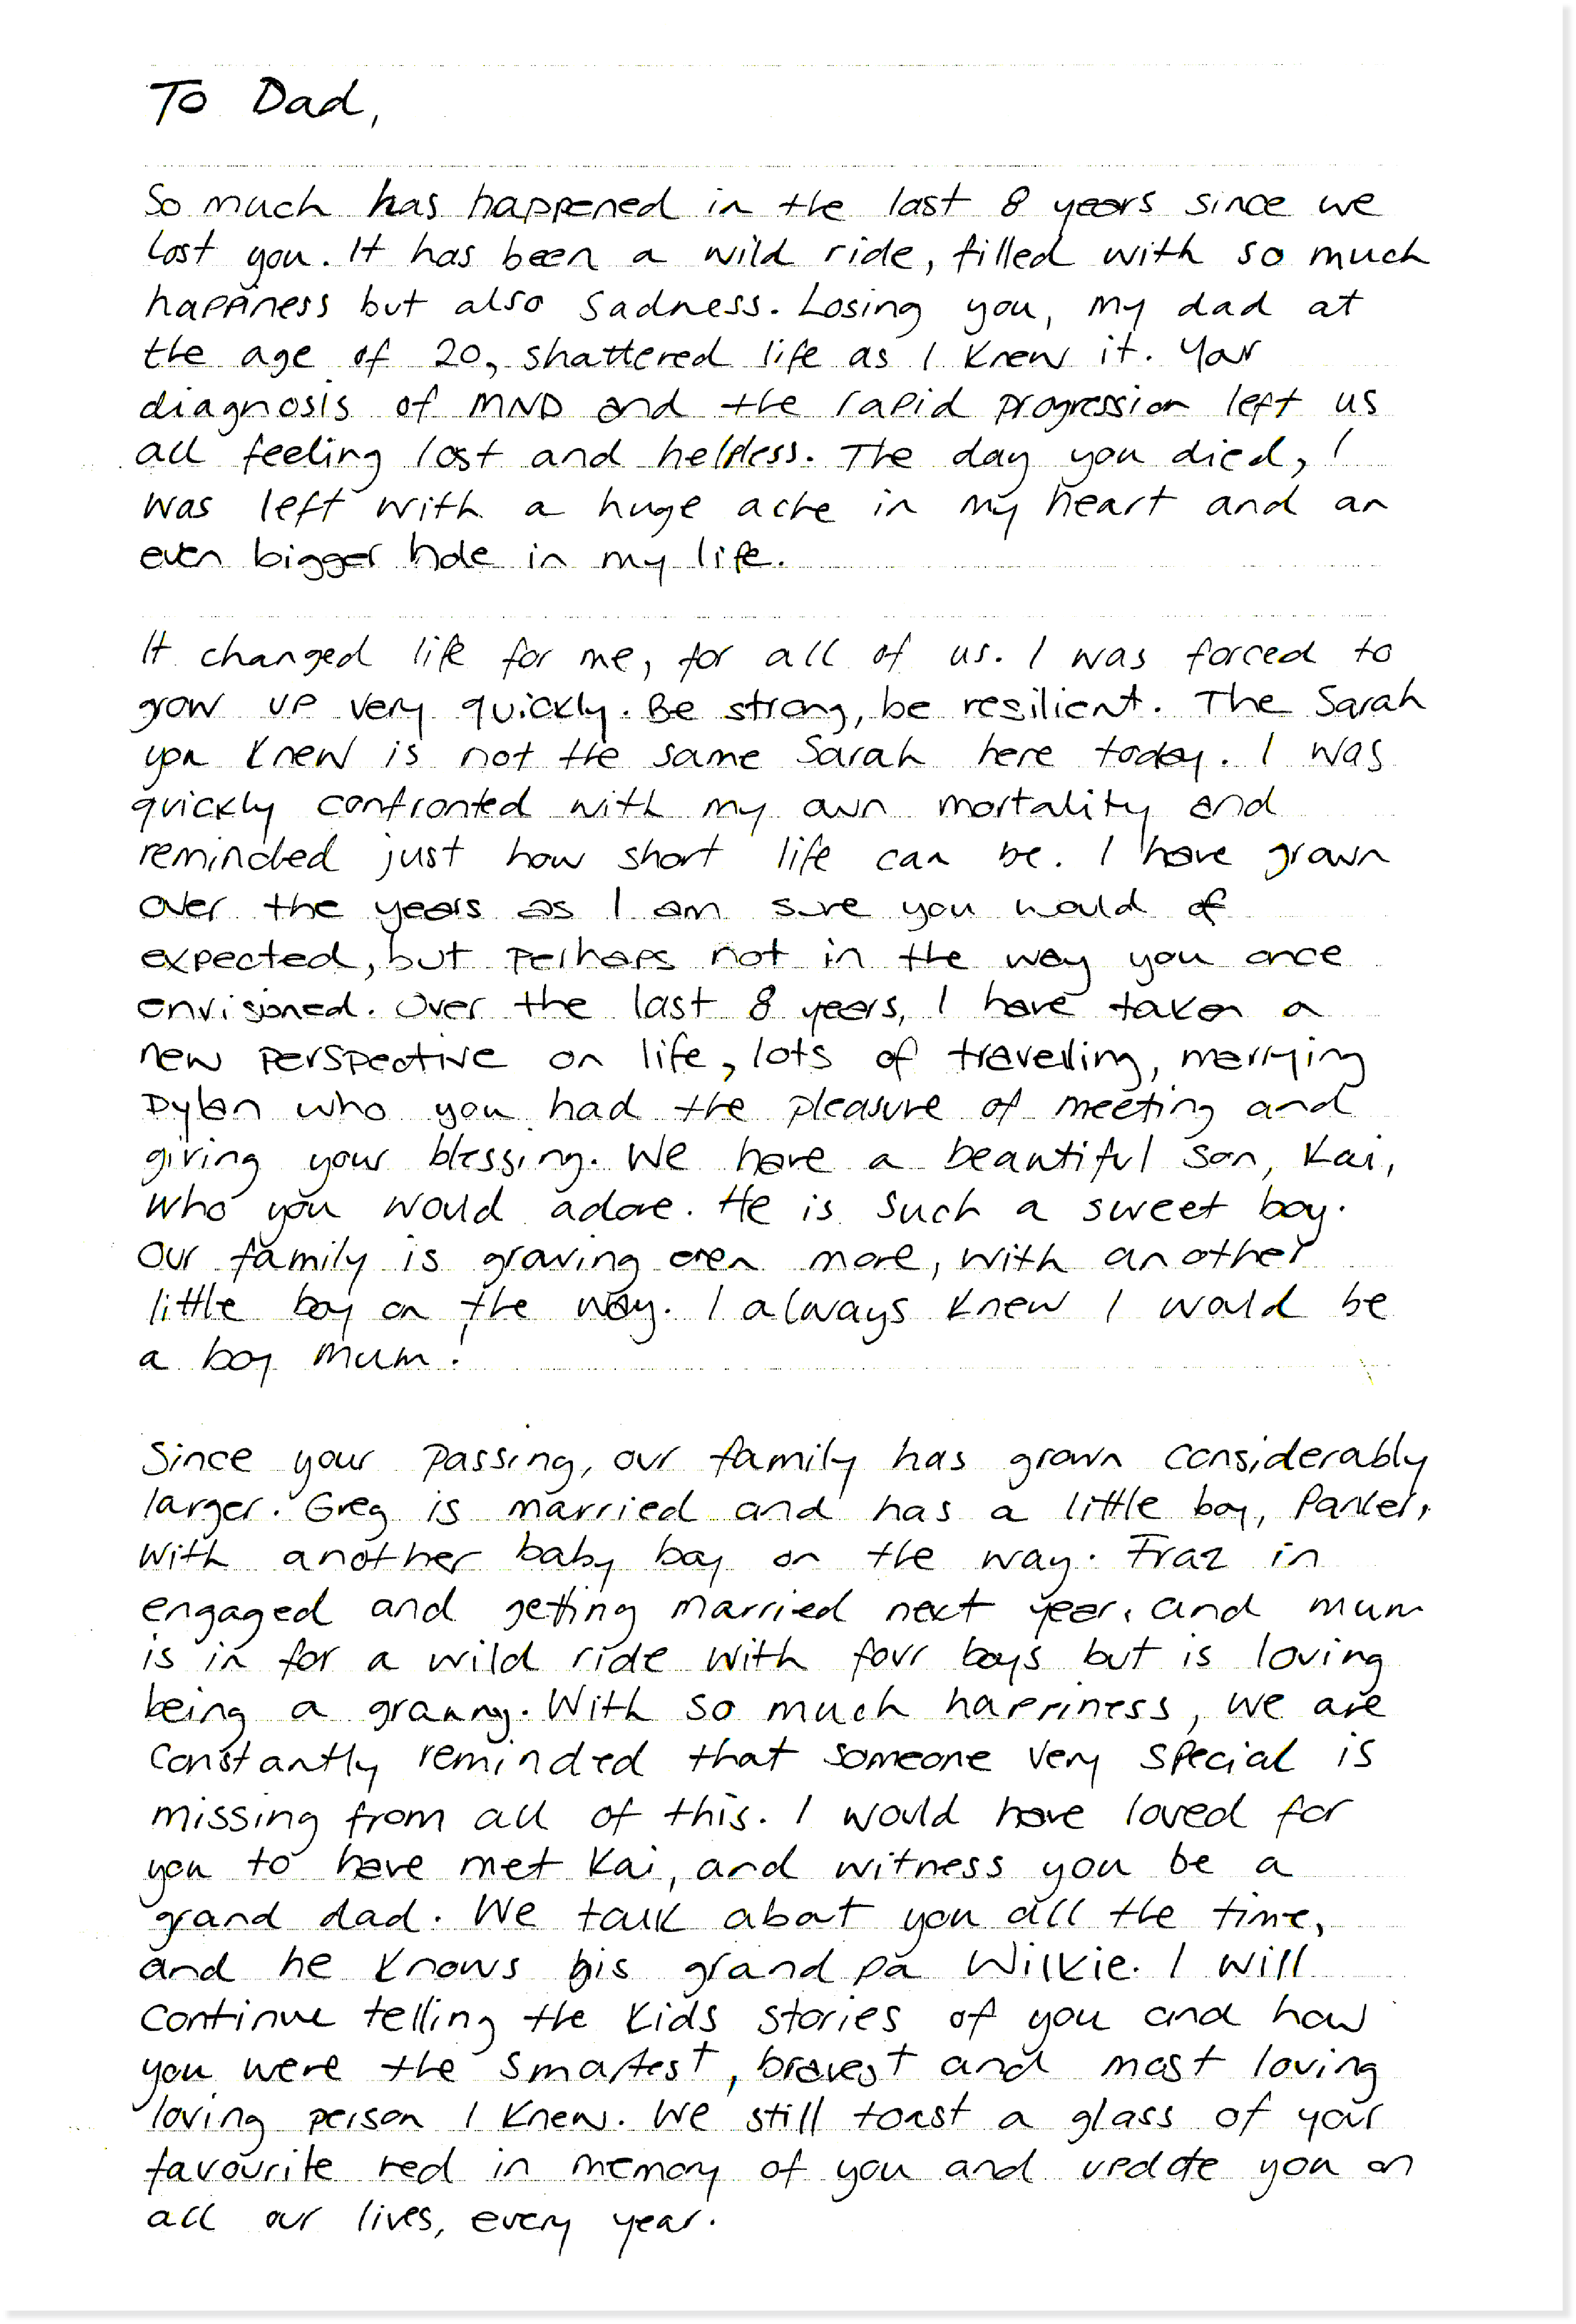 To Dad,
So much has happened in the last 8 years since we
lost you. It has been a wild ride, filled with so much
happiness but also sadness. Losing you, my dad at
the age of 20, shattered life as I knew it. Your
diagnosis of MND and the rapid progression left us
all feeling lost and helpless. The day you died, I
was left with a huge ache in my heart and an
even bigger hole in my life.
It changed life for me, for all of us. I was forced to
grow up very quickly. Be strong, be resilient. The Sarah
you knew is not the same Sarah here today. I was
quickly confronted with my own mortality and
reminded just how short life can be. I have grown
over the years as I am sure you would of
expected, but perhaps not in the way you once
envisioned. Over the last 8 years, I have taken a
new perspective on life, lots of travelling, marrying
Dylan who you had the pleasure of meeting and
giving your blessing. We have a beautiful son, Kai,
who you would adore. He is such a sweet boy.
Our family is growing even more, with another
little boy on the way. I always knew I would be
a boy mum!
Since your passing, our family has grown considerably
larger. Greg is married and has a little boy, Parker,
with another baby boy on the way. Fraz in
engaged and getting married next year, and mum
is in for a wild ride with four boys but is loving
being a granny. With so much happiness, we are
constantly reminded that someone very special is
missing from all of this. I would have loved for
you to have met Kai, and witness you be a
grand dad. We talk about you all the time,
and he knows his grand pa Wilkie. I will
continue telling the kids stories of you and how
you were the smartest, bravest and most loving
loving person I knew. We still toast a glass of your
favourite red in memory of you and update you on
all our lives, every year.